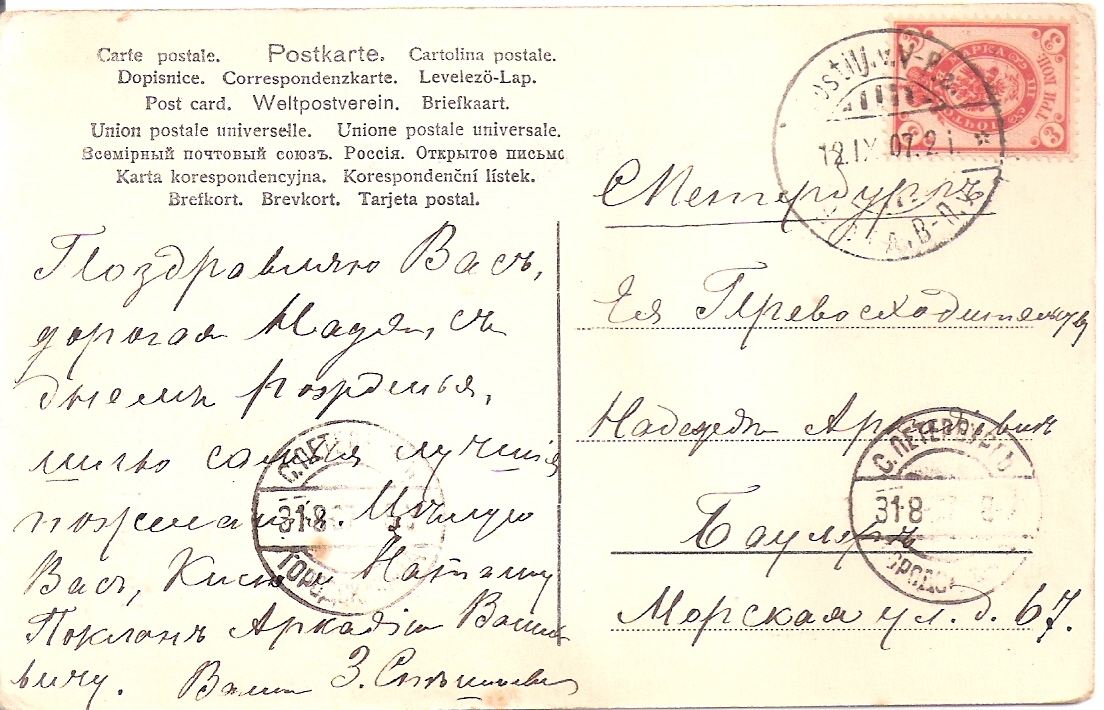 Carte postale. Postkarte. Cartolina postale.
Dopisnice. Correspondenzkarte. Levelező-Lap.
Post card. Weltpostverein. Briefkaart.
Union postale universelle. Unione postale universale.
Всемірный почтовый союзъ. Россія. Открытое письмо
Karta korespondencyjna. Korespondenční lístek.
Brefkort. Brevkort. Tarjeta postal.
Поздравляю Васъ,
дорогая Надя, съ
днемъ рожденья,
шлю самыя лучшія
пожеланія. Цѣлую
Васъ, Кисю и Наташу
Поклонъ Аркадію Василье
вичу. Ваша З.
МАРКА
ТРИ КОП.
3
12.IX.07.
СПетербургъ
Ея Превосходительству
Надеждѣ Аркадьевнѣ
Баулеръ
Морская ул. д. 67.
С.ПЕТЕРБУРГЪ
31·8
С.ПЕТ
31·8
ГОРОД